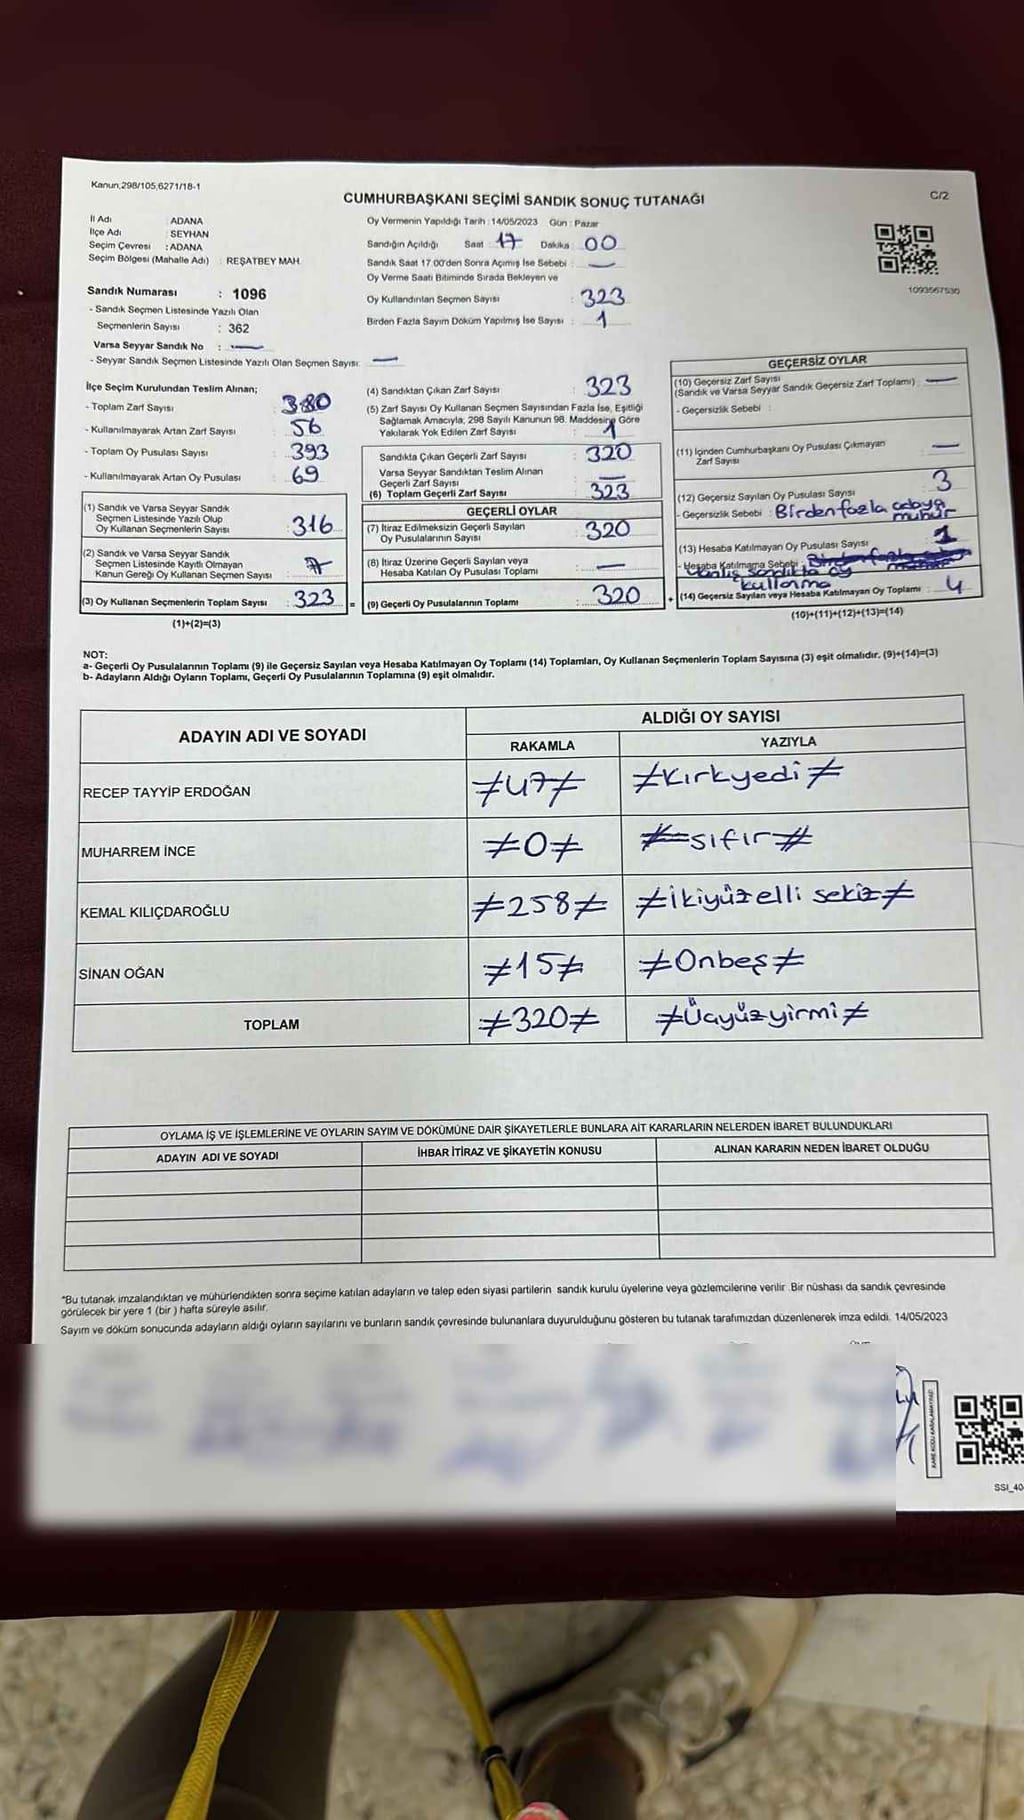 Kanun,298/105,6271/18-1
CUMHURBAŞKANI SEÇİMİ SANDIK SONUÇ TUTANAĞI
C/2
İl Adı : ADANA
İlçe Adı : SEYHAN
Seçim Çevresi : ADANA
Seçim Bölgesi (Mahalle Adı) : REŞATBEY MAH.
Sandık Numarası : 1096
- Sandık Seçmen Listesinde Yazılı Olan
Seçmenlerin Sayısı : 362
Varsa Seyyar Sandık No : —
- Seyyar Sandık Seçmen Listesinde Yazılı Olan Seçmen Sayısı: —
Oy Vermenin Yapıldığı Tarih : 14/05/2023 Gün : Pazar
Sandığın Açıldığı Saat : 17 Dakika : 00
Sandık Saat 17.00'den Sonra Açımış İse Sebebi : —
Oy Verme Saati Bitiminde Sırada Bekleyen ve
Oy Kullandırılan Seçmen Sayısı : 323
Birden Fazla Sayım Döküm Yapılmış İse Sayısı : 1
1093567530
İlçe Seçim Kurulundan Teslim Alınan;
- Toplam Zarf Sayısı : 380
- Kullanılmayarak Artan Zarf Sayısı : 56
- Toplam Oy Pusulası Sayısı : 393
- Kullanılmayarak Artan Oy Pusulası : 69
(1) Sandık ve Varsa Seyyar Sandık
Seçmen Listesinde Yazılı Olup
Oy Kullanan Seçmenlerin Sayısı : 316
(2) Sandık ve Varsa Seyyar Sandık
Seçmen Listesinde Kayıtlı Olmayan
Kanun Gereği Oy Kullanan Seçmen Sayısı : 7
(3) Oy Kullanan Seçmenlerin Toplam Sayısı : 323 =
(1)+(2)=(3)
(4) Sandıktan Çıkan Zarf Sayısı : 323
(5) Zarf Sayısı Oy Kullanan Seçmen Sayısından Fazla İse, Eşitliği
Sağlamak Amacıyla, 298 Sayılı Kanunun 98. Maddesine Göre
Yakılarak Yok Edilen Zarf Sayısı : 1
Sandıkta Çıkan Geçerli Zarf Sayısı : 320
Varsa Seyyar Sandıktan Teslim Alınan
Geçerli Zarf Sayısı : —
(6) Toplam Geçerli Zarf Sayısı : 323
GEÇERLİ OYLAR
(7) İtiraz Edilmeksizin Geçerli Sayılan
Oy Pusulalarının Sayısı : 320
(8) İtiraz Üzerine Geçerli Sayılan veya
Hesaba Katılan Oy Pusulası Toplamı : —
(9) Geçerli Oy Pusulalarının Toplamı : 320 +
GEÇERSİZ OYLAR
(10) Geçersiz Zarf Sayısı
(Sandık ve Varsa Seyyar Sandık Geçersiz Zarf Toplamı) : —
- Geçersizlik Sebebi :
(11) İçinden Cumhurbaşkanı Oy Pusulası Çıkmayan
Zarf Sayısı : —
(12) Geçersiz Sayılan Oy Pusulası Sayısı : 3
- Geçersizlik Sebebi : Birden fazla adaya
mühür
(13) Hesaba Katılmayan Oy Pusulası Sayısı : 1
- Hesaba Katılmama Sebebi :
Yanlış sandıkta oy
kullanma
(14) Geçersiz Sayılan veya Hesaba Katılmayan Oy Toplamı : 4
(10)+(11)+(12)+(13)=(14)
NOT:
a- Geçerli Oy Pusulalarının Toplamı (9) ile Geçersiz Sayılan veya Hesaba Katılmayan Oy Toplamı (14) Toplamları, Oy Kullanan Seçmenlerin Toplam Sayısına (3) eşit olmalıdır. (9)+(14)=(3)
b- Adayların Aldığı Oyların Toplamı, Geçerli Oy Pusulalarının Toplamına (9) eşit olmalıdır.
ADAYIN ADI VE SOYADI
ALDIĞI OY SAYISI
RAKAMLA YAZIYLA
RECEP TAYYİP ERDOĞAN ≠47≠ ≠Kırkyedi≠
MUHARREM İNCE ≠0≠ ≠sıfır≠
KEMAL KILIÇDAROĞLU ≠258≠ ≠İkiyüzelli sekiz≠
SİNAN OĞAN ≠15≠ ≠Onbeş≠
TOPLAM ≠320≠ ≠Üçyüzyirmi≠
OYLAMA İŞ VE İŞLEMLERİNE VE OYLARIN SAYIM VE DÖKÜMÜNE DAİR ŞİKAYETLERLE BUNLARA AİT KARARLARIN NELERDEN İBARET BULUNDUKLARI
ADAYIN ADI VE SOYADI İHBAR İTİRAZ VE ŞİKAYETİN KONUSU ALINAN KARARIN NEDEN İBARET OLDUĞU
*Bu tutanak imzalandıktan ve mühürlendikten sonra seçime katılan adayların ve talep eden siyasi partilerin sandık kurulu üyelerine veya gözlemcilerine verilir. Bir nüshası da sandık çevresinde
görülecek bir yere 1 (bir ) hafta süreyle asılır.
Sayım ve döküm sonucunda adayların aldığı oyların sayılarını ve bunların sandık çevresinde bulunanlara duyurulduğunu gösteren bu tutanak tarafımızdan düzenlenerek imza edildi. 14/05/2023
KARE KODU KARALAMAYINIZ!
SSI_40